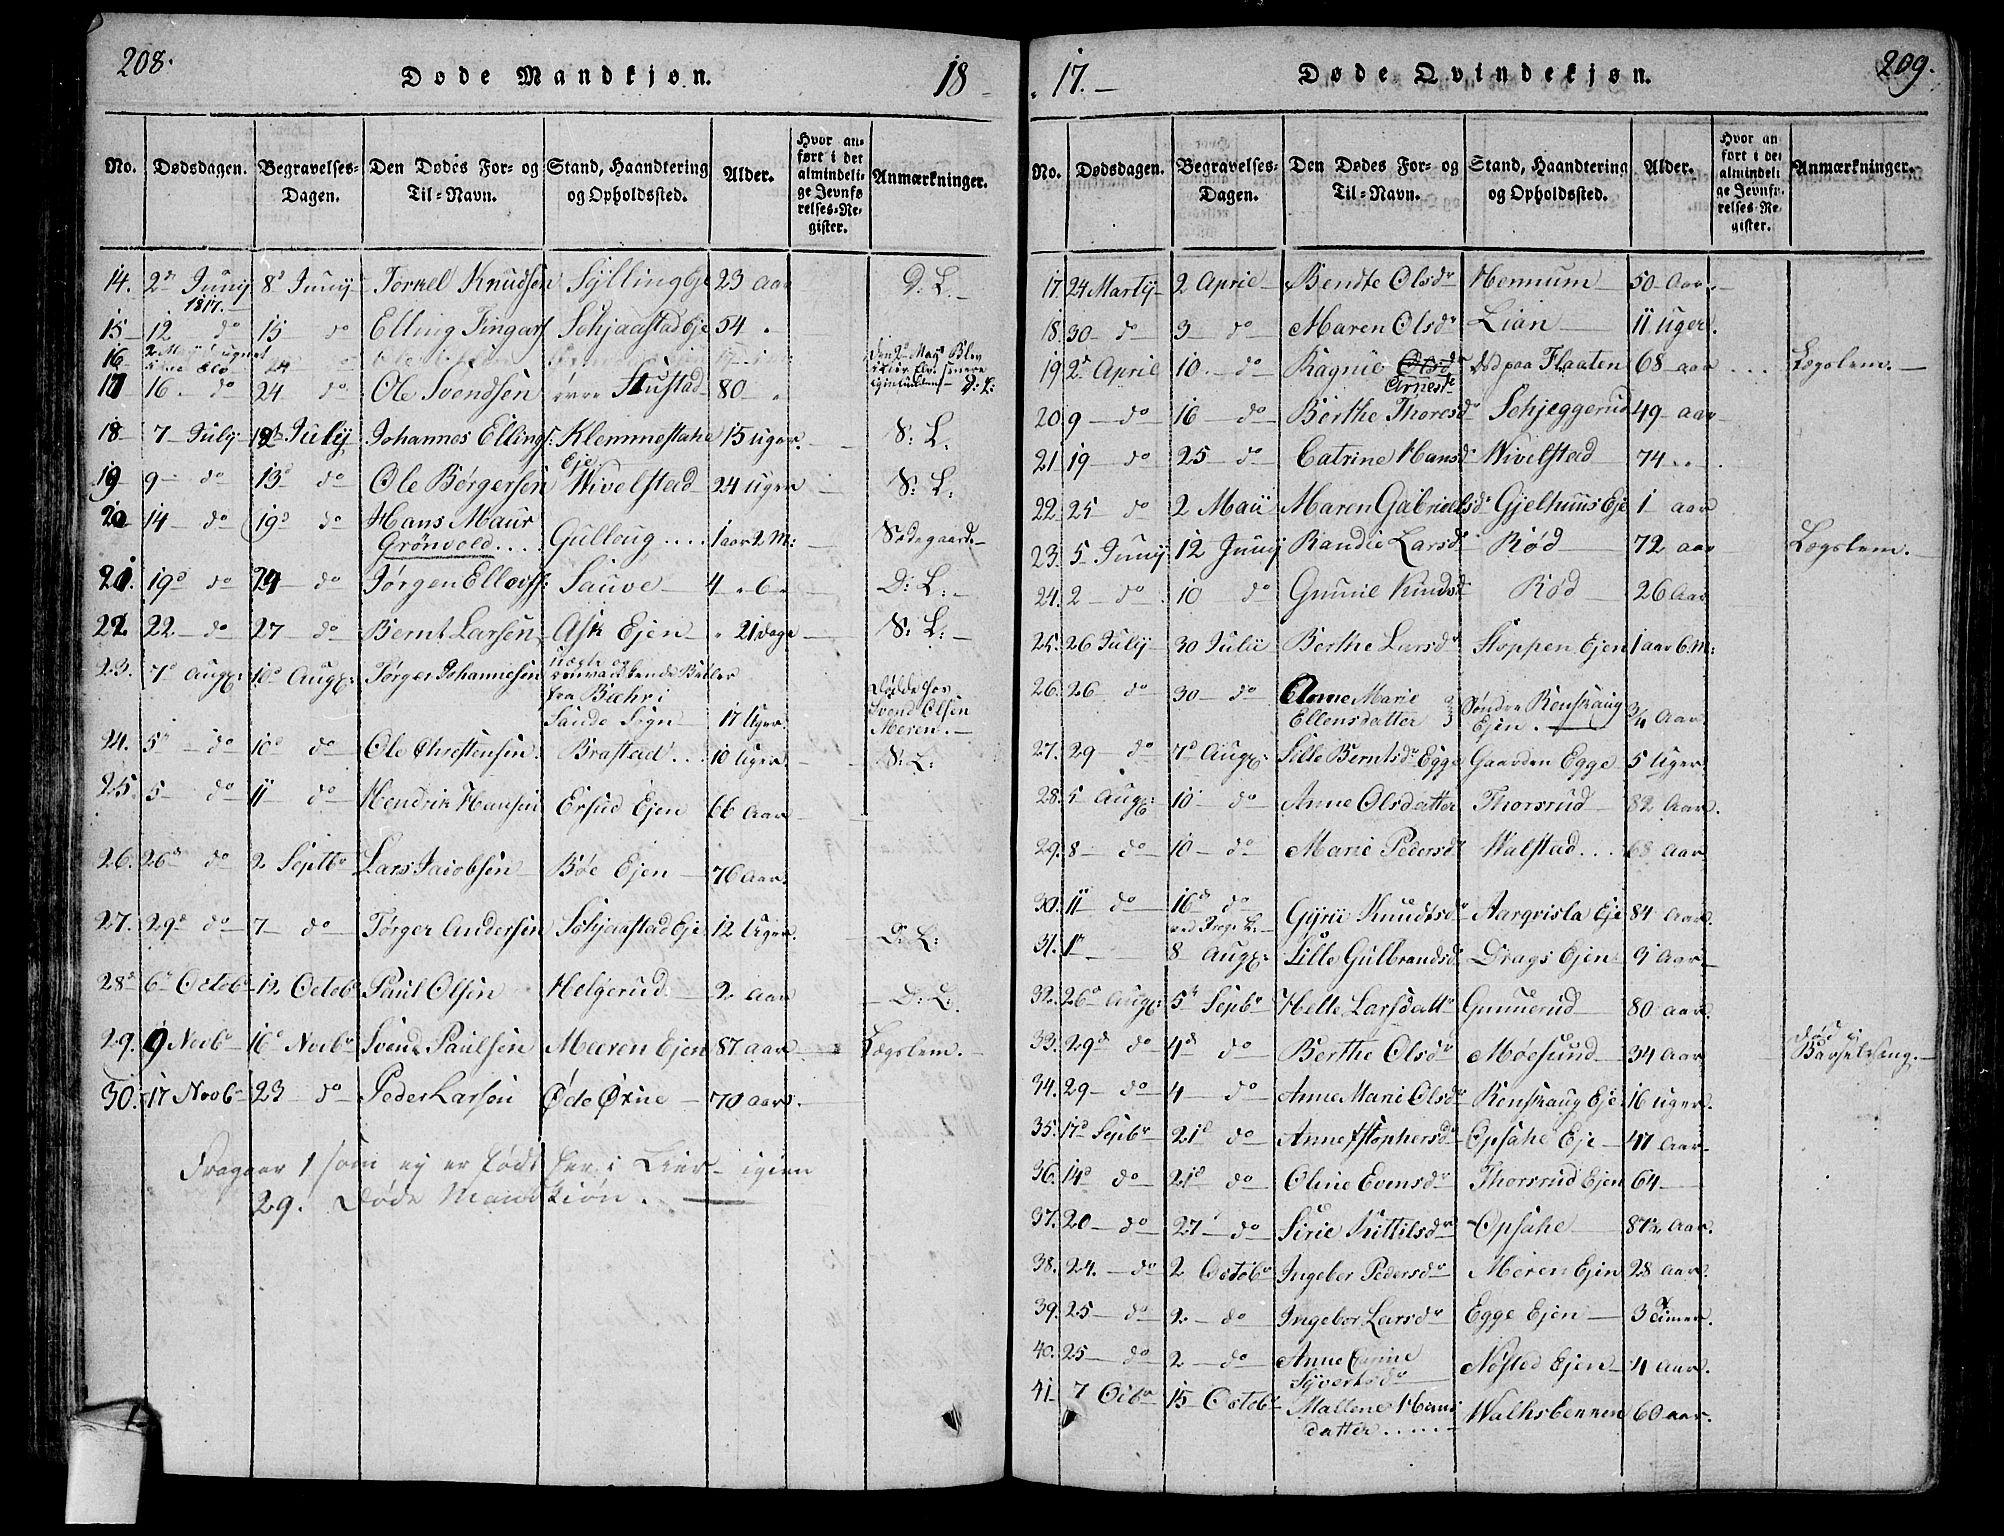 208.
Døde Mandkjøn.
18
No. Dødsdagen. Begravelses-Dagen. Den Dødes For- og Til-Navn. Stand, Haandtering og Opholdssted. Alder. Hvor anført i det almindelige Jevnførelses-Register. Anmærkninger.
14. 2d Junij 1817. 8d Junij Torkel Knudsen Sylling Eje 23 Aar D. L.
15 12 do 15 do Elling Fingars Schjaastad Eje 54 "
16 2 Maij
17 16 do 24 do Ole Svendsen øvre Stustad 80 "
18 7 July July Johannes Ellings: Klemmestahe 15 Uger. S: L.
19 9 do 13d do Ole Børgersen Wivelstad Eje 24 Uger S: L:
20 14 do 19d do Hans Maur
Grönvold .... Gulloug .... 1 aar 2 M: Sødegaard
21. 19d do 24 do Jørgen Ellevs: Sauve 4 " 6 " D: L:
22. 22 do 27 do Bernt Larsen Ask Ejen " 21 dage S: L:
23. 7d Augx: 10d Augx: Tørger Johannesen
fra Bæhr i
Sande Sogn 17 Uger. Døde hos
Svend Olsen
Meren.
24. 5t do 10d do Ole Christensen Brastad ... 10 Uger S: L:
25. 5 do 11 do Hendrik Hansen Ersud Ejen 66 Aar
26. 26d do 2 Septbr Lars Jacobsen Bøe Ejen 76 Aar.
27. 29d do 7 do Tørger Andersen Schjaastad Eje 12 Uger. D: L:
28 6t Octobr 12 Octobr Paul Olsen Helgerud 2 Aar D: L:
29. 9 Novbr 16d Novbr Svend Paulsen Meeren Ejen 87 aar Lægslem.
30. 17 Novbr 23 do Peder Larsen Øde Øxne 70 Aar
Fragaar 1 som ey er født her i Lier igien
29. Døde Mandkiøn.
17.
Døde Qvindekjøn.
209.
No. Dødsdagen. Begravelses-Dagen. Den Dødes For- og Til-Navn. Stand, Haandtering og Opholdssted. Alder. Hvor anført i det almindelige Jevnførelses-Register. Anmærkninger.
17. 24 Martij 2 April Bendte Olsdr Hennum 50 Aar.
18. 30 do 3 do Maren Olsdr Lian 11 Uger.
19. 2d April 10 do Ragnie Olsdr Arnesdr død paa Flaaten 68 aar Lægslem.
20. 9 do 16 do Berthe Thoresdr Schjeggerud 49 aar
21 19 do 25 do Catrine Hansdr Wivelstad 74
22. 25 do 2 Maii Maren Gabrielsdr Gjelhuus Eje 1 aar
23. 5 Junij 12 Junij Randie Larsdr Rød 72 aar Lægslem.
24. 2 do 10 do Gunnie Knudsdr Rød 26 Aar
25. 26 July 30 Julii Berthe Larsdr Stoppen Ejen 1 aar 6 M:
26. 26 do 30 do Anne Marie
Ellensdatter Søndre Renskaug
Ejen. 3/4 Aar
27. 29 do 7d Augx: Lille Berntsdr Egge Gaarden Egge 5 Uger
28. 5 Augx: 10 do Anne Olsdatter Thorsrud 82 Aar.
29. 8 do 10 do Marie Pedersdr Walstad ... 68 Aar
30. 11 do 16d do Gyrie Knudtsdr Aarqvisla Eje 84 Aar.
31. 1t 8 Augx: Lille Gulbrandsd Drags Ejen 3 Aar
32. 26d Augx: 5t Sepbr Helte Larsdattr Gunnerud 80 Aar.
33. 29d do 4d do Berthe Olsdr Møesund 34 Aar død i
Barselseng.
34. 29 do 4 do Anne Marie Olsdr Renskaug Eje 16 Uger.
35. 17d Sepbr 21d do Anne Stophersdr Opsahe Eje 47 Aar
36. 14d do 21d do Oline Evensdr Thorsrud Ejen 64
37. 20 do 27 do Sirie Kittilsdr Opsahe 87½ Aar
38. 24. do 2 Octobr Ingeber Pedersdr Meren Ejen 28 Aar.
39. 25 do 2 do Ingebor Larsdr Egge Ejen 3 Timer.
40. 25 do 2 do Anne Carine
Syvertsdr Nøsted Ejen 4 Aar.
41 7 Octbr 15 Octobr Mallene Hans
datter ..... Walhsbennen 60 aar.